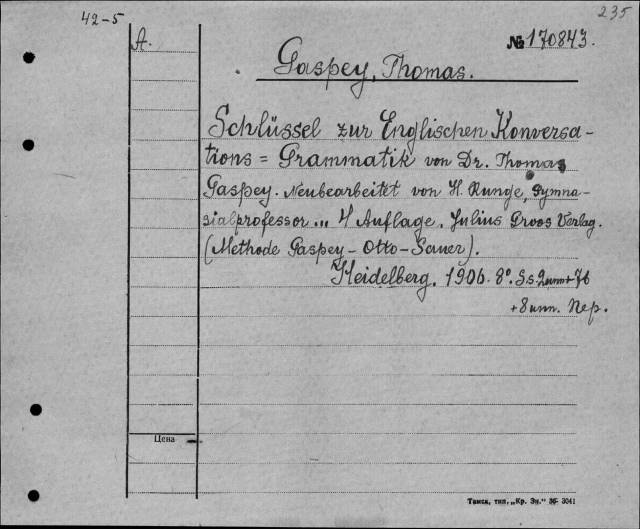 42-5
235
A.
№ 170843.
Gaspey, Thomas.
Schlüssel zur Englischen Konversa-
tions = Grammatik von Dr. Thomas
Gaspey. Neubearbeitet von H. Runge, Gymna-
sialprofessor... 4 Auflage. Julius Groos Verlag.
(Methode Gaspey - Otto - Sauer).
Heidelberg. 1906. 8°. Ss. 2 unn + 76
+ 8 unn. Пер.
Цена
Тамса, тип. „Кр. Зн." 36- 3041